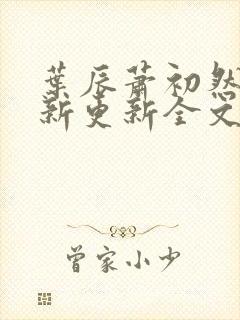 葉辰蕭初然
新更新全文
曾家小少